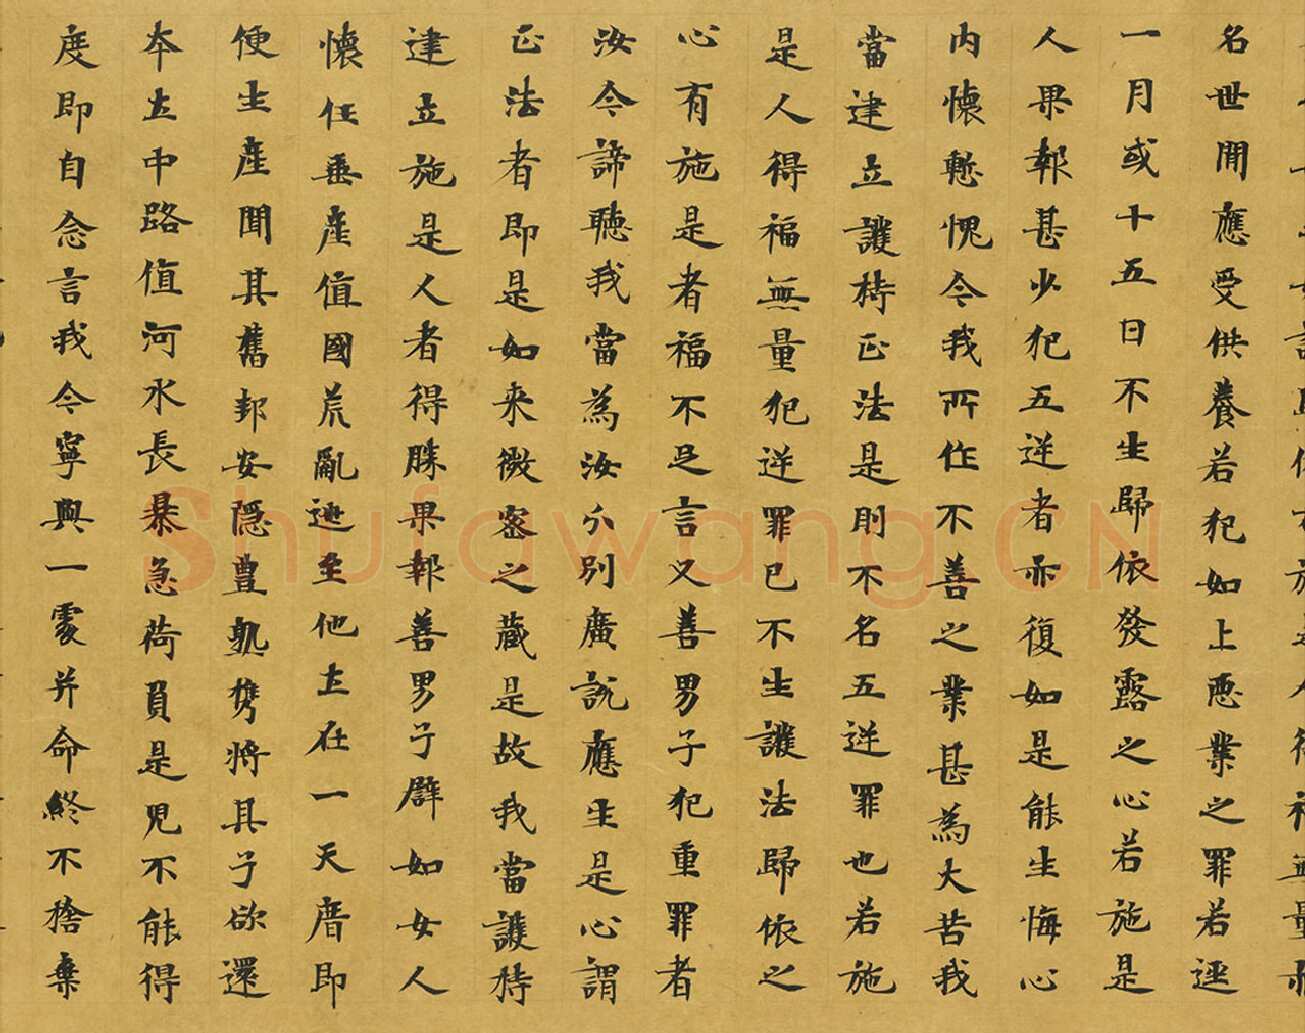 名世間應受供養若犯如上惡業之罪若逕
一月或十五日不生歸依發露之心若施是
人果報甚少犯五逆者亦復如是能生悔心
内懷慙愧今我所作不善之業甚為大苦我
當建立護持正法是則不名五逆罪也若施
是人得福無量犯逆罪已不生護法歸依之
心有施是者福不足言又善男子犯重罪者
汝今諦聽我當為汝分別廣說應生是心謂
正法者即是如来微密之藏是故我當護持
建立施是人者得勝果報善男子譬如女人
懷任垂產值國荒亂逃至他土在一天廟即
便生產聞其舊邦安隱豊熟携將其子欲還
本土中路值河水長暴急荷負是兒不能得
度即自念言我今寧與一處并命終不捨棄
Shufawang.CN